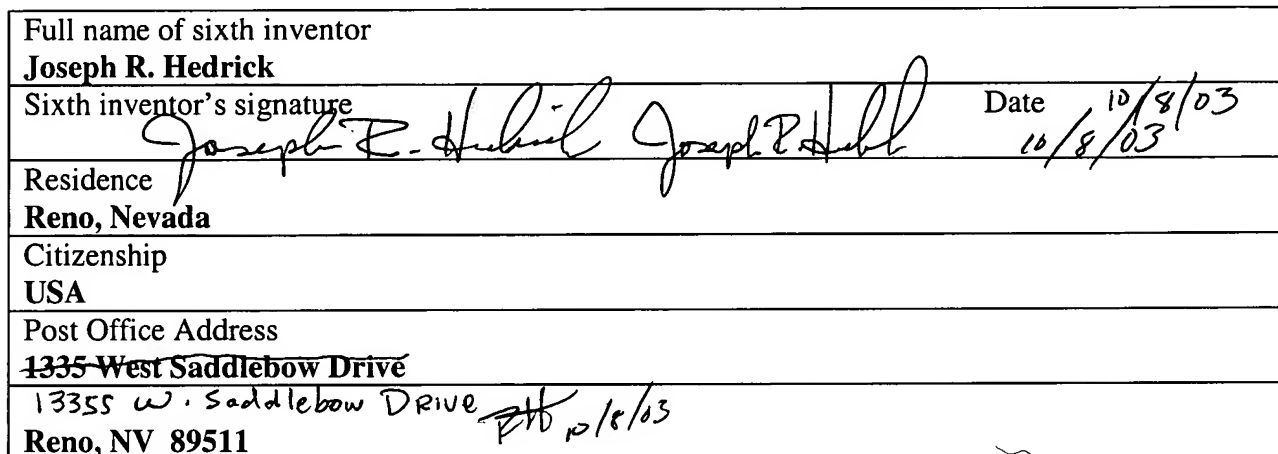 Full name of sixth inventor
Joseph R. Hedrick
Sixth inventor's signature Date 10/8/03
Joseph R. 10/8/03
Residence
Reno, Nevada
Citizenship
USA
Post Office Address
1335 West Saddlebow Drive
13355 W. Saddlebow Drive 10/8/03
Reno, NV 89511